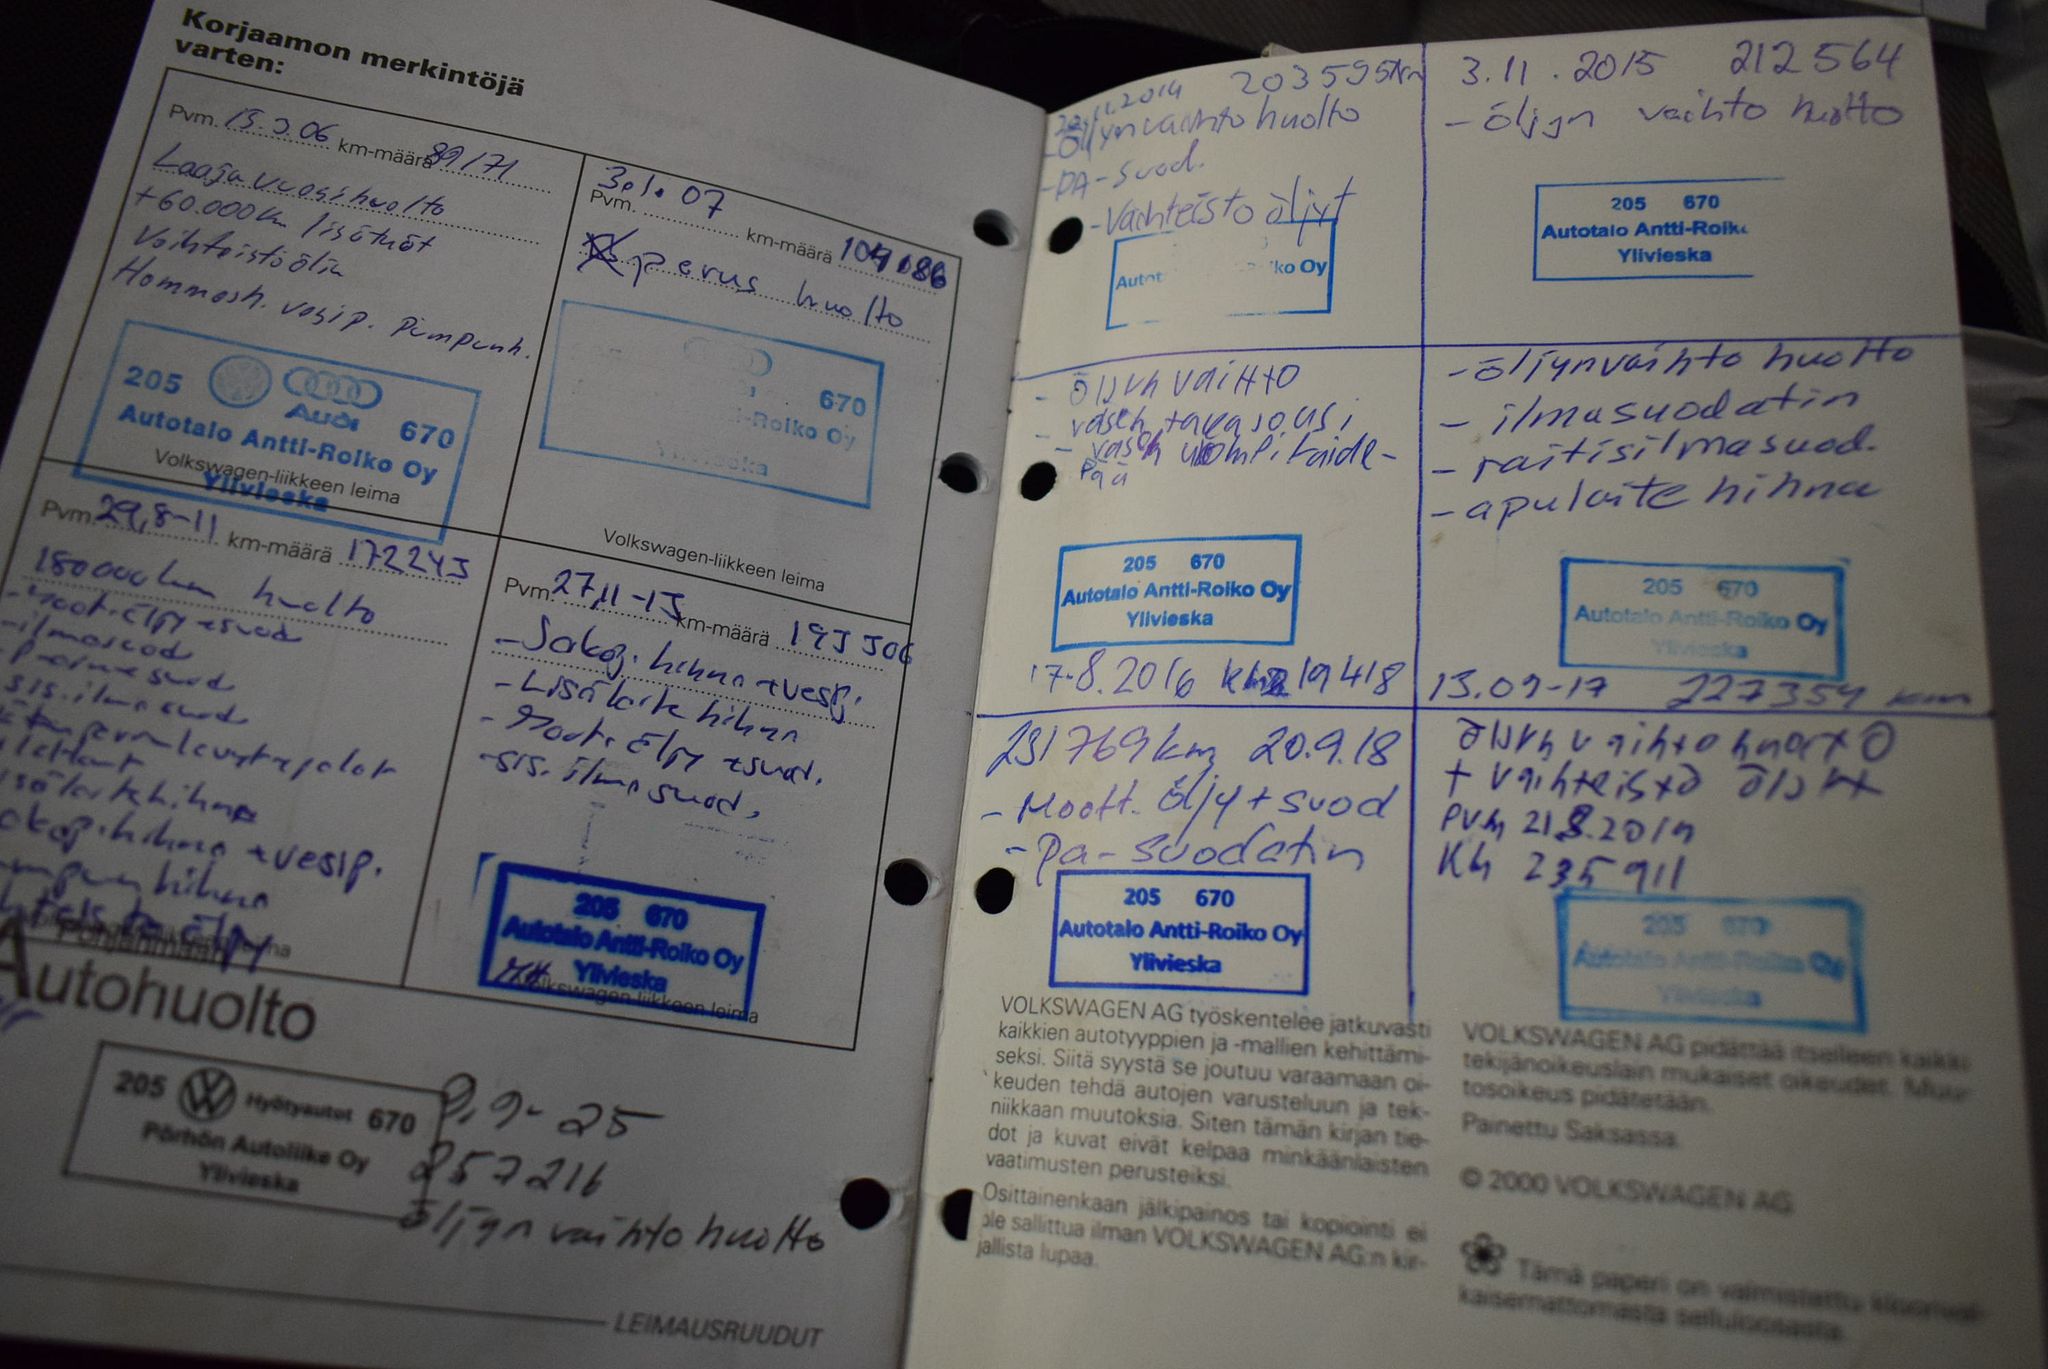 Korjaamon merkintöjä
varten:
Pvm. 15.3.06 km-määrä 89171
Laaja vuosihuolto
+60.000km lisätyöt
Vaihteistoöljy
Hammash. vesip. Pumpunh.
205 Audi 670
Autotalo Antti-Roiko Oy
Volkswagen-liikkeen leima
Ylivieska
3.1.07
Pvm. km-määrä 104086
perus huolto
670
-Roiko Oy
Ylivieska
Volkswagen-liikkeen leima
Pvm. 29,8-11 km-määrä 172243
180000km huolto
-Moot. Öljy+suod
-ilmasuod
sis.ilmasuod
hihna +vesip.
hihna
Pvm. 27,11-13 km-määrä 193306
-Jakoj. hihna +vesip.
-Lisälaite hihna
-Moot. Öljy +suod.
-sis. ilmasuod.
205 670
Autotalo Antti-Roiko Oy
Ylivieska
Volkswagen-liikkeen leima
Autohuolto
205 Hyötyautot 670
Pörhön Autoliike Oy
Ylivieska
9.9-25
257216
öljyn vaihto huolto
LEIMAUSRUUDUT
11.2014 203595km
-Öljynvaihto huolto
-PA-suod.
-Vaihteisto öljyt
Autot ko Oy
3.11.2015 212564
-öljyn vaihto huolto
205 670
Autotalo Antti-Roiko
Ylivieska
- öljyn vaihto
- vasen takajousi
- vasen
pää
205 670
Autotalo Antti-Roiko Oy
Ylivieska
17.8.2016 19418
-öljynvaihto huolto
- ilmasuodatin
- raitisilmasuod.
- apulaite hihna
205 670
Autotalo Antti-Roiko Oy
Ylivieska
13.09-17 227354 km
231769km 20.9.18
- Moott. öljy + suod
- Pa-suodatin
205 670
Autotalo Antti-Roiko Oy
Ylivieska
öljyn vaihto huolto
+ vaihteisto öljyt
Pvm 21.8.2019
Km 235911
205 670
Autotalo Antti-Roiko Oy
Ylivieska
VOLKSWAGEN AG työskentelee jatkuvasti
kaikkien autotyyppien ja -mallien kehittämi-
seksi. Siitä syystä se joutuu varaamaan oi-
keuden tehdä autojen varusteluun ja tek-
niikkaan muutoksia. Siten tämän kirjan tie-
dot ja kuvat eivät kelpaa minkäänlaisten
vaatimusten perusteiksi.
Osittainenkaan jälkipainos tai kopiointi ei
ole sallittua ilman VOLKSWAGEN AG:n kir-
jallista lupaa.
VOLKSWAGEN AG pidättää itselleen kaikki
tekijänoikeuslain mukaiset oikeudet. Muu-
tosoikeus pidätetään.
Painettu Saksassa.
© 2000 VOLKSWAGEN AG
Tämä paperi on valmistettu kloorival-
kaisemattomasta selluloosasta.